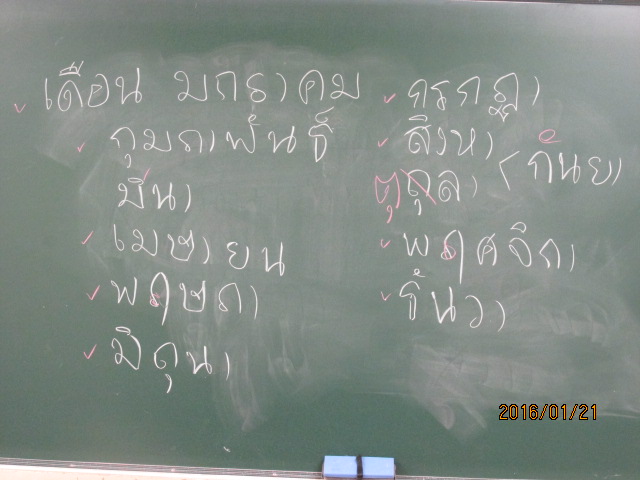 เดือน มกราคม
กุมภาพันธ์
มีนา
เมษายน
พฤษภา
มิถุนา
กรกฎา
สิงหา
ตุลา (กันยา
พฤศจิกา
ธันวา
2016/01/21